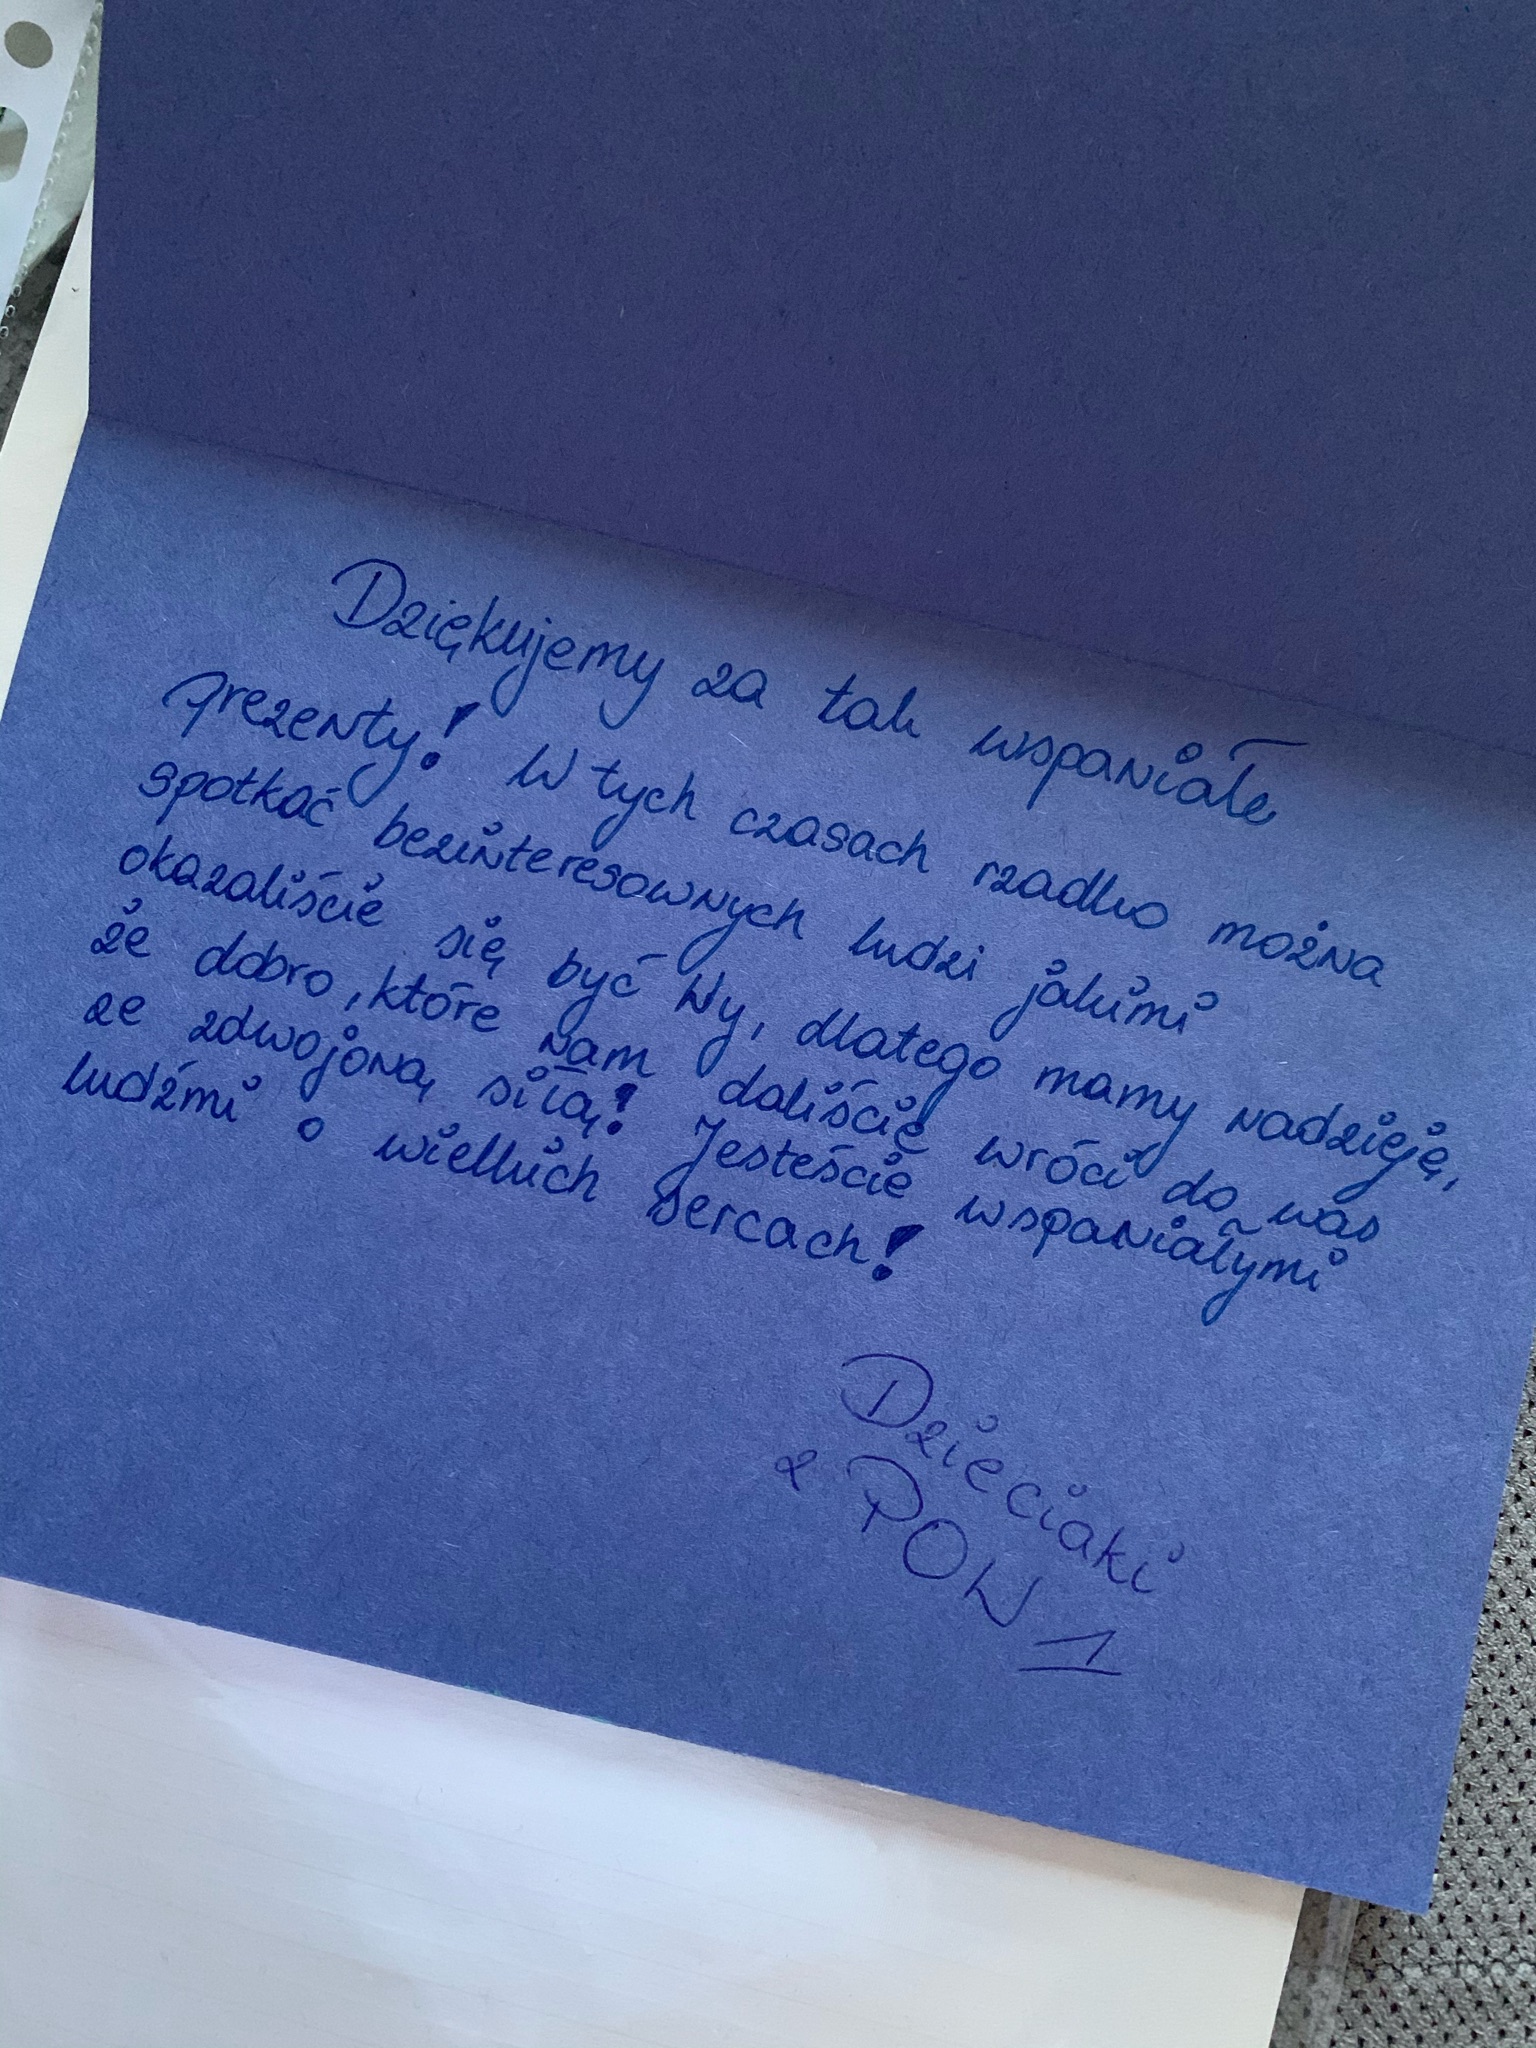 Dziękujemy za tak wspaniałe
prezenty! W tych czasach rzadko można
spotkać bezinteresownych ludzi jakimi
okazaliście się być Wy, dlatego mamy nadzieję,
że dobro, które nam daliście wróci do was
ze zdwojoną siłą! Jesteście wspaniałymi
ludźmi o wielkich sercach!
Dzieciaki
z POW 1